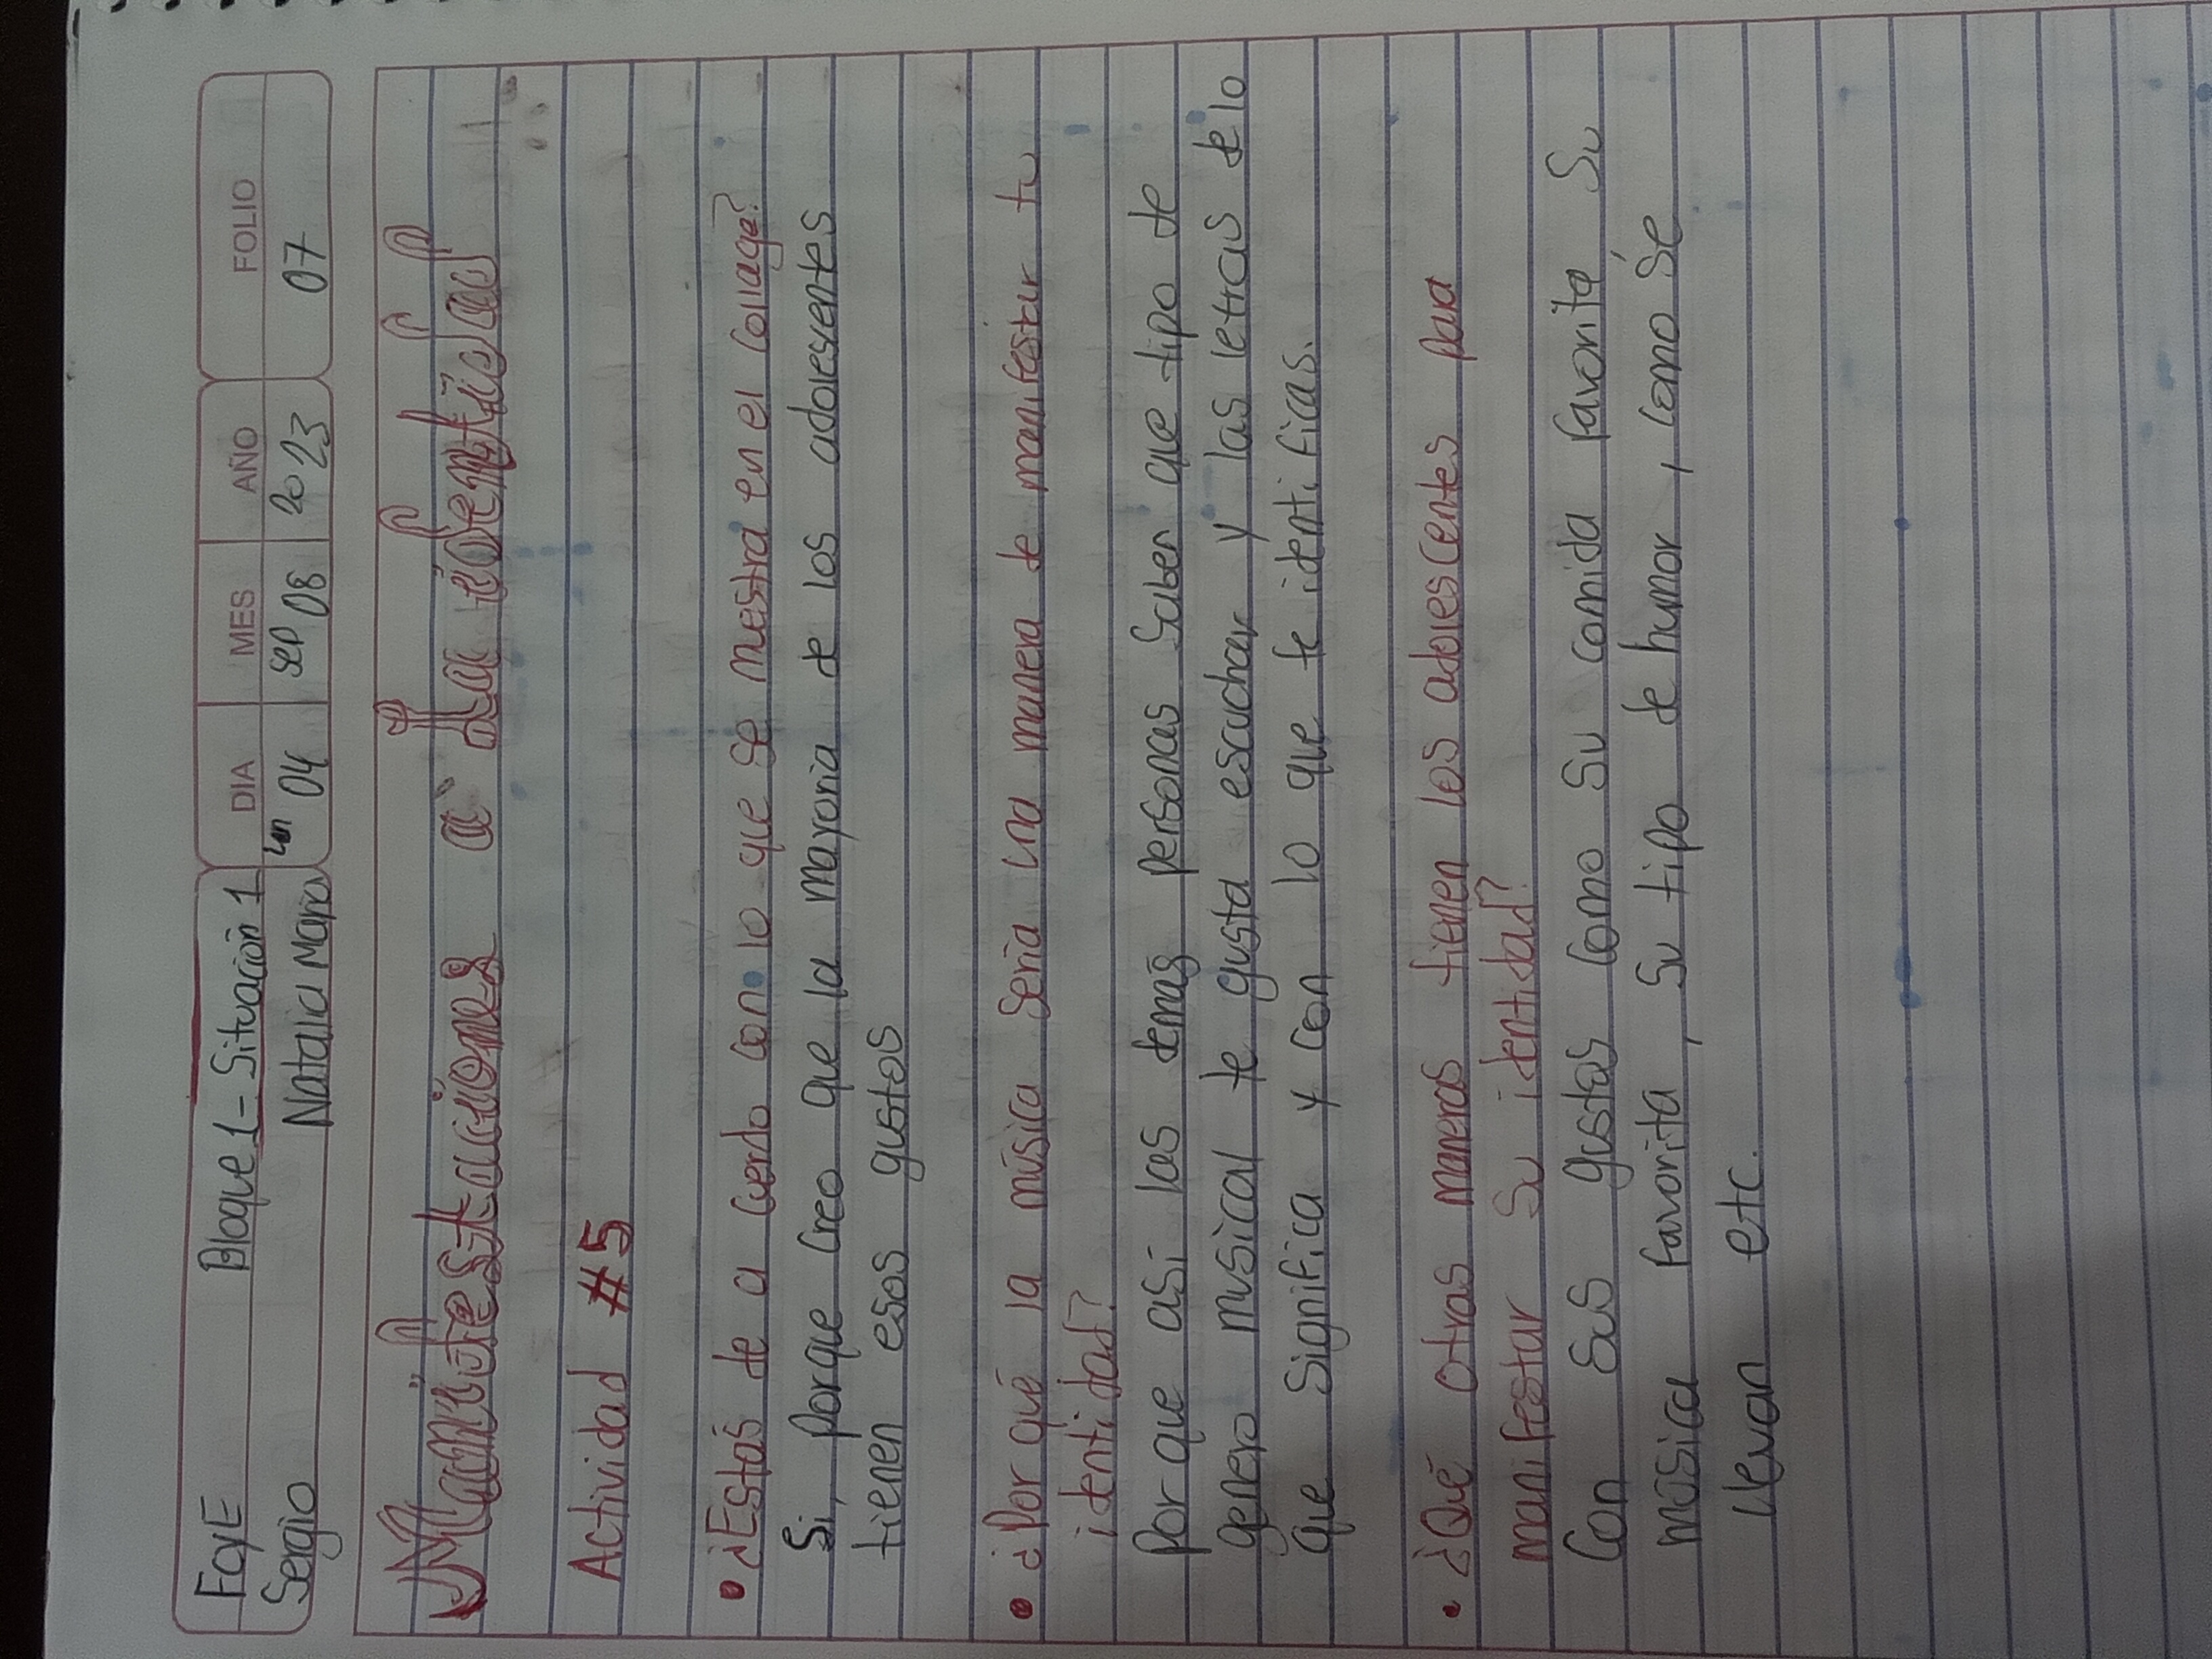 FCyE Bloque 1 - Situación 1
Sergio Natalia María
DIA MES AÑO FOLIO
Lun 04 Sep 08 2023 07
Manifestaciones a La identidad
Actividad #5
• ¿Estás de a cuerdo con lo que se mestra en el collage?
Si, porque creo que la mayoria de los adolesentes
tienen esos gustos
• ¿Por qué la música seria una manera de manifestar tu
identidad?
Por que asi las demás personas saben que tipo de
genero musical te gusta escuchar y las letras de lo
que significa y con lo que te identificas.
• ¿Qué otras maneras tienen los adolescentes para
manifestar su identidad?
Con sus gustos como su comida favorita su
música favorita, su tipo de humor, como se
llevan etc.